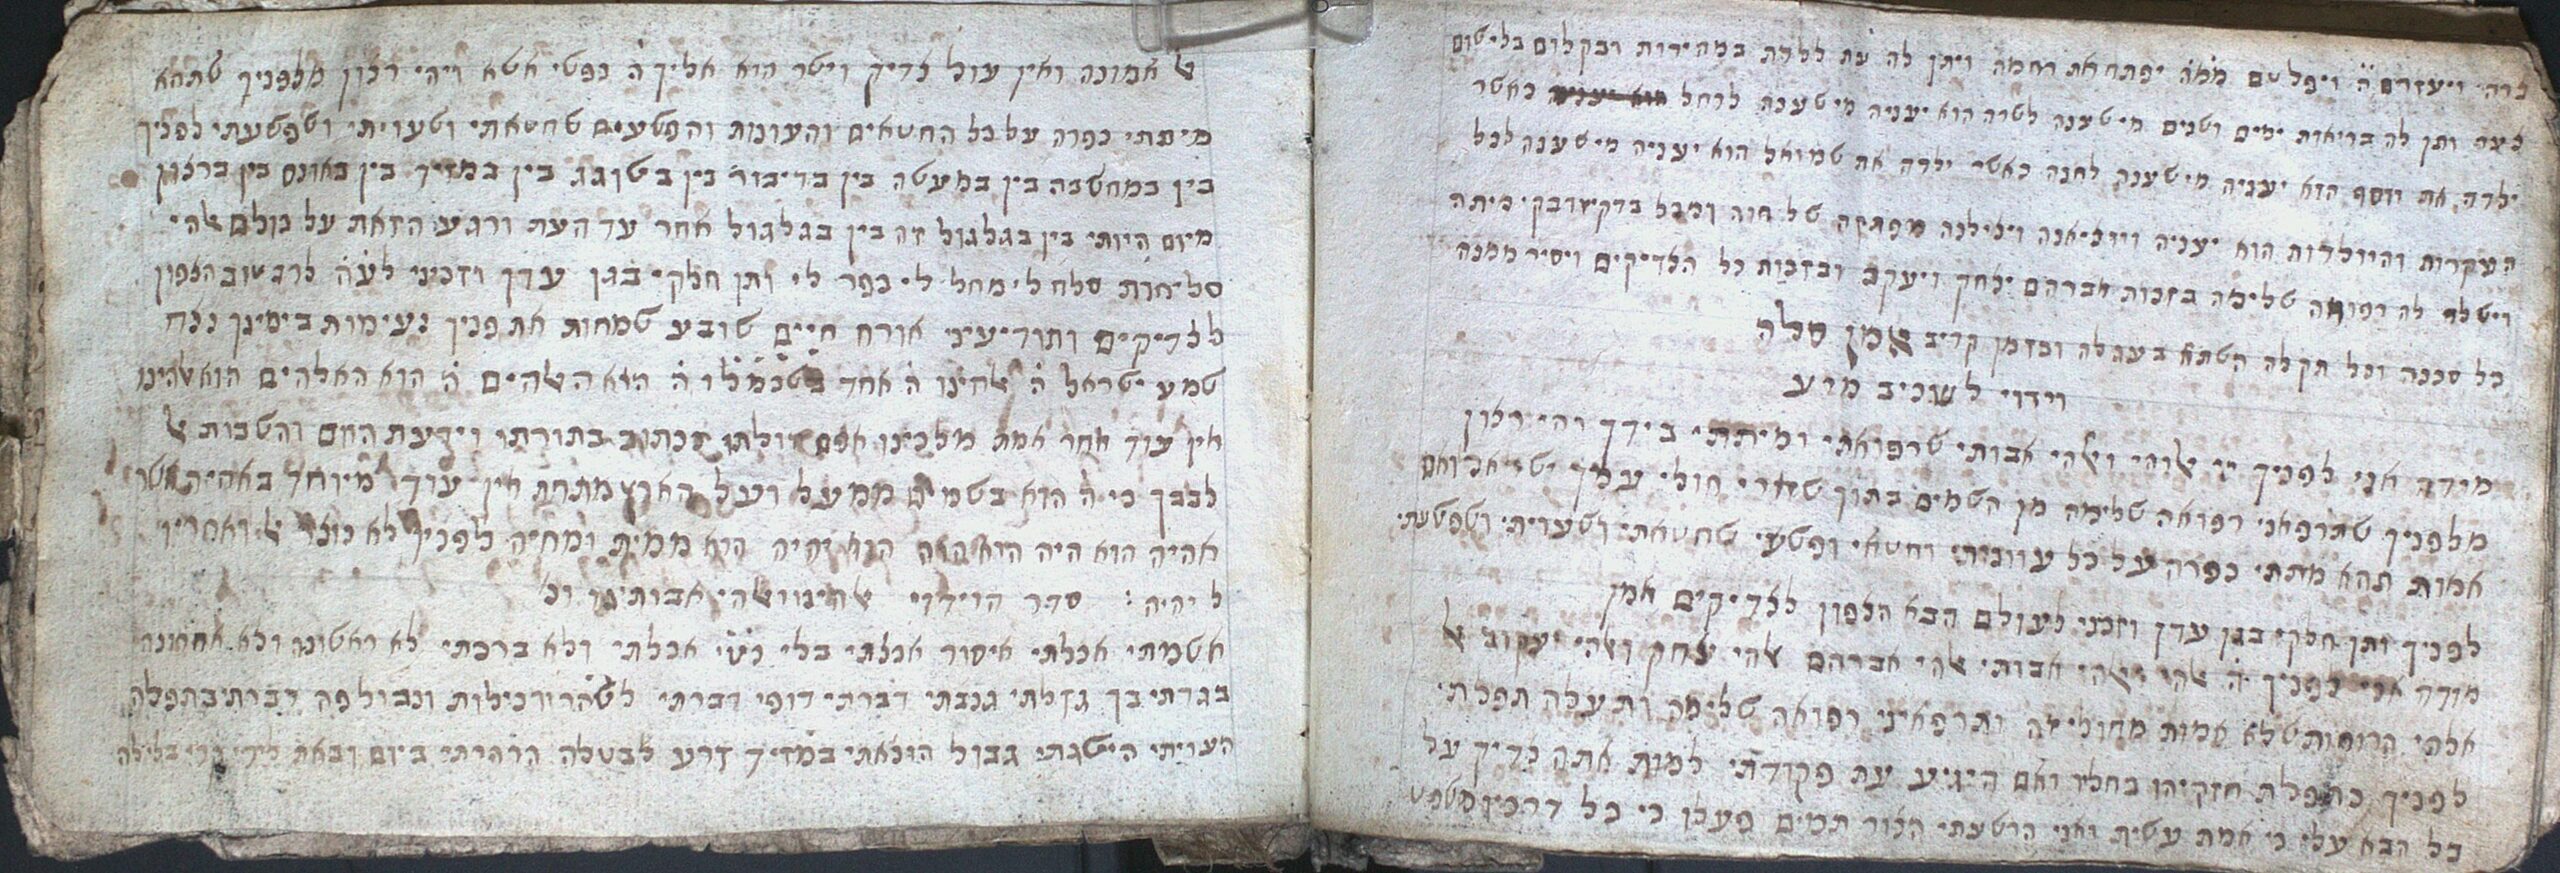 צרה׳ ויעזרם ה֗ ויפלטם ממ֗ה֗ יפתח את רחמה ויתן לה עת ללדת במהירות ובקלות בלי שום
צער ותן לה בריאות ימים ושנים מי שענה לשרה הוא יעניה מי שענה לרחל כאשר
ילדה את יוסף הוא יעניה מי שענה לחנה כאשר ילדה את שמואל הוא יעניה מי שענה לכל
העקרות והיולדות הוא יעניה ויוציאנה ויצילנה מפתקה של חוה ומכל
וישלח לה רפואה שלימה בזכות אברהם יצחק ויעקב ובזכות כל הצדיקים ויסיר ממנה
כל סכנה וכל תקלה השתא בעגלה ובזמן קריב אמן סלה
וידוי לשכיב מרע
מודה אני לפניך יי ﭏוהי וﭏהי אבותי שרפואתי ומיתתי בידך ויהי רצון
מלפניך שתרפאני רפואה שלימה מן השמים בתוך שארי חולי עמך ישראל ואם
אמות תהא מתתי כפרה על כל עוונותי וחטאי ופשעי שחטאתי ושעויתי ושפשעתי
לפניך ותן חלקי בגן עדן וזכני לעולם הבא הצפון לצדיקים אמן
מודה אני לפניך ה֗ ﭏהי וﭏהי אבותי ﭏהי אברהם ﭏהי יצחק וﭏהי יעקוב ﭏ
אלהי הרוחות שלא אמות מחולי זה ותרפאיני רפואה שלימה ותעלה תפלתי
לפניך כתפלת חזקיהו בחליו ואם היגיע עת פקודתי למות אתה צדיק על
כל הבא עלי כי אמת עשית ואני הרשעתי הצור תמים פעלו כי כל דרכיו משפט
ﭏ אמונה ואין עול צדיק וישר הוא אליך ה֗ נפשי אשא ויהי רצון מלפניך שתהא
מיתתי כפרה על כל החטאים והעונות והפשעים שחטאתי ושעויתי ושפשעתי לפניך
בין במחשבה בין במעשה בין בדיבור בין בשוגג בין במזיד בין באונס בין ברצון
מיום היותי בין בגלגול זה בין בגלגול אחר עד העת ורגע הזאת על כולם ﭏהי
סליחות סלח לי מחל לי כפר לי ותן חלקי בגן עדן וזכיני לע֗ה֗ לרב טוב הצפון
לצדיקים ותודיעיני אורח חיים שובע שמחות את פניך נעימות בימינך נצח
שמע ישראל ה֗ ﭏהינו ה֗ אחד בשכמלו ה֗ הוא הﭏהים ה֗ הוא האלהים הוא ﭏהינו
אין עוד אחר אמת מלכינו אפס זולתו ככתוב בתורתו וידעת היום והשבות ﭏ
לבבך כי ה֗ הוא בשמים ממעל ועל הארץ מתחת אין עוד מיוחד באהיה אשר
אהיה הוא היה הוא הוה הוא יהיה הוא ממית ומחיה לפניך לא נוצר ﭏ ואחריו
ל יהיה : סדר הוידוי ﭏהינו וﭏהי אבותינו וכ׳
אשמתי אכלתי איסור אכלתי בלי נט״י אכלתי ולא ברכתי לא ראשונה ולא אחרונה
בגדתי בך גזלתי גנבתי דברתי דופי דברתי לשה״ר ורכילות ונבול פה דברתי בתפלה
העויתי הישגתי גבול הוצאתי במזיד זרע לבטלה הרהרתי ביום ובאת לידי קרי בלילה